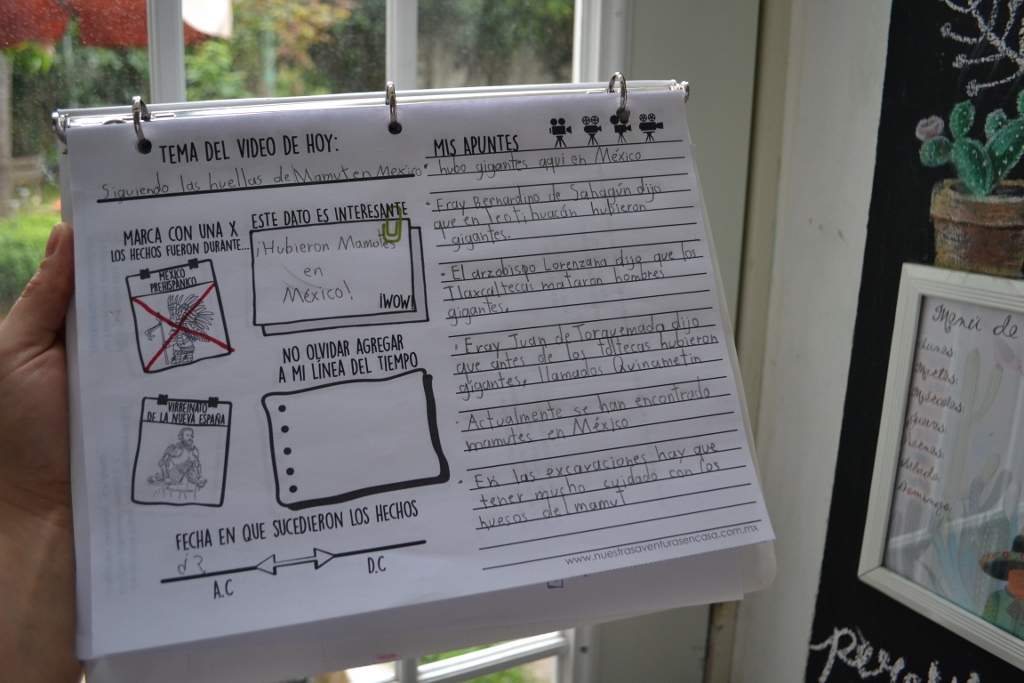 TEMA DEL VIDEO DE HOY:
Siguiendo las huellas de Mamut en México
MARCA CON UNA X
LOS HECHOS FUERON DURANTE...
MÉXICO
PREHISPÁNICO
VIRREINATO
DE LA NUEVA ESPAÑA
ESTE DATO ES INTERESANTE
¡Hubieron Mamutes
en
México!
¡WOW!
NO OLVIDAR AGREGAR
A MI LÍNEA DEL TIEMPO
FECHA EN QUE SUCEDIERON LOS HECHOS
¿?
A.C
D.C
MIS APUNTES
hubo gigantes aqui en México
· Fray Bernardino de Sahagún dijo
que en Teotihuacán hubieron
gigantes.
· El arzobispo Lorenzana dijo que los
Tlaxcaltecas mataron hombres
gigantes.
· Fray Juan de Torquemada dijo
que antes de los toltecas hubieron
gigantes, llamados Quinametin
· Actualmente se han encontrado
mamutes en México
· En las excavaciones hay que
tener mucho cuidado con los
huesos de mamut
www.nuestrasaventurasencasa.com.mx
Menú de
Lunes:
Martes:
Miércoles:
Jueves:
Viernes:
Sábado:
Domingo: